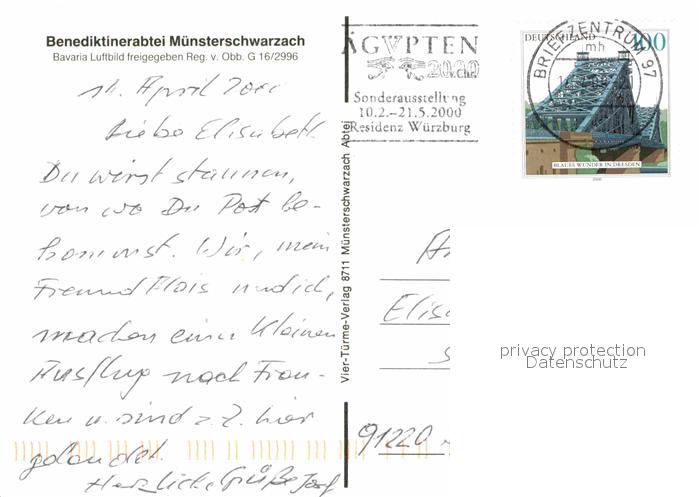 Benediktinerabtei Münsterschwarzach
Bavaria Luftbild freigegeben Reg. v. Obb. G 16/2996
April
Liebe Elisabeth
Du wirst staunen,
von wo Du Post be-
kommst. Wir, mein
Freund Alois und ich,
machen einen kleinen
Ausflug nach Fran-
ken u. sind z. Z. hier
gelandet.
Herzliche Grüße Josef
Vier-Türme-Verlag 8711 Münsterschwarzach Abtei
ÄGYPTEN
2000 v. Chr.
Sonderausstellung
10.2.–21.5.2000
Residenz Würzburg
BRIEFZENTRUM 97
mh
DEUTSCHLAND 100
BLAUES WUNDER IN DRESDEN
2000
An
Elis
91220
privacy protection
Datenschutz